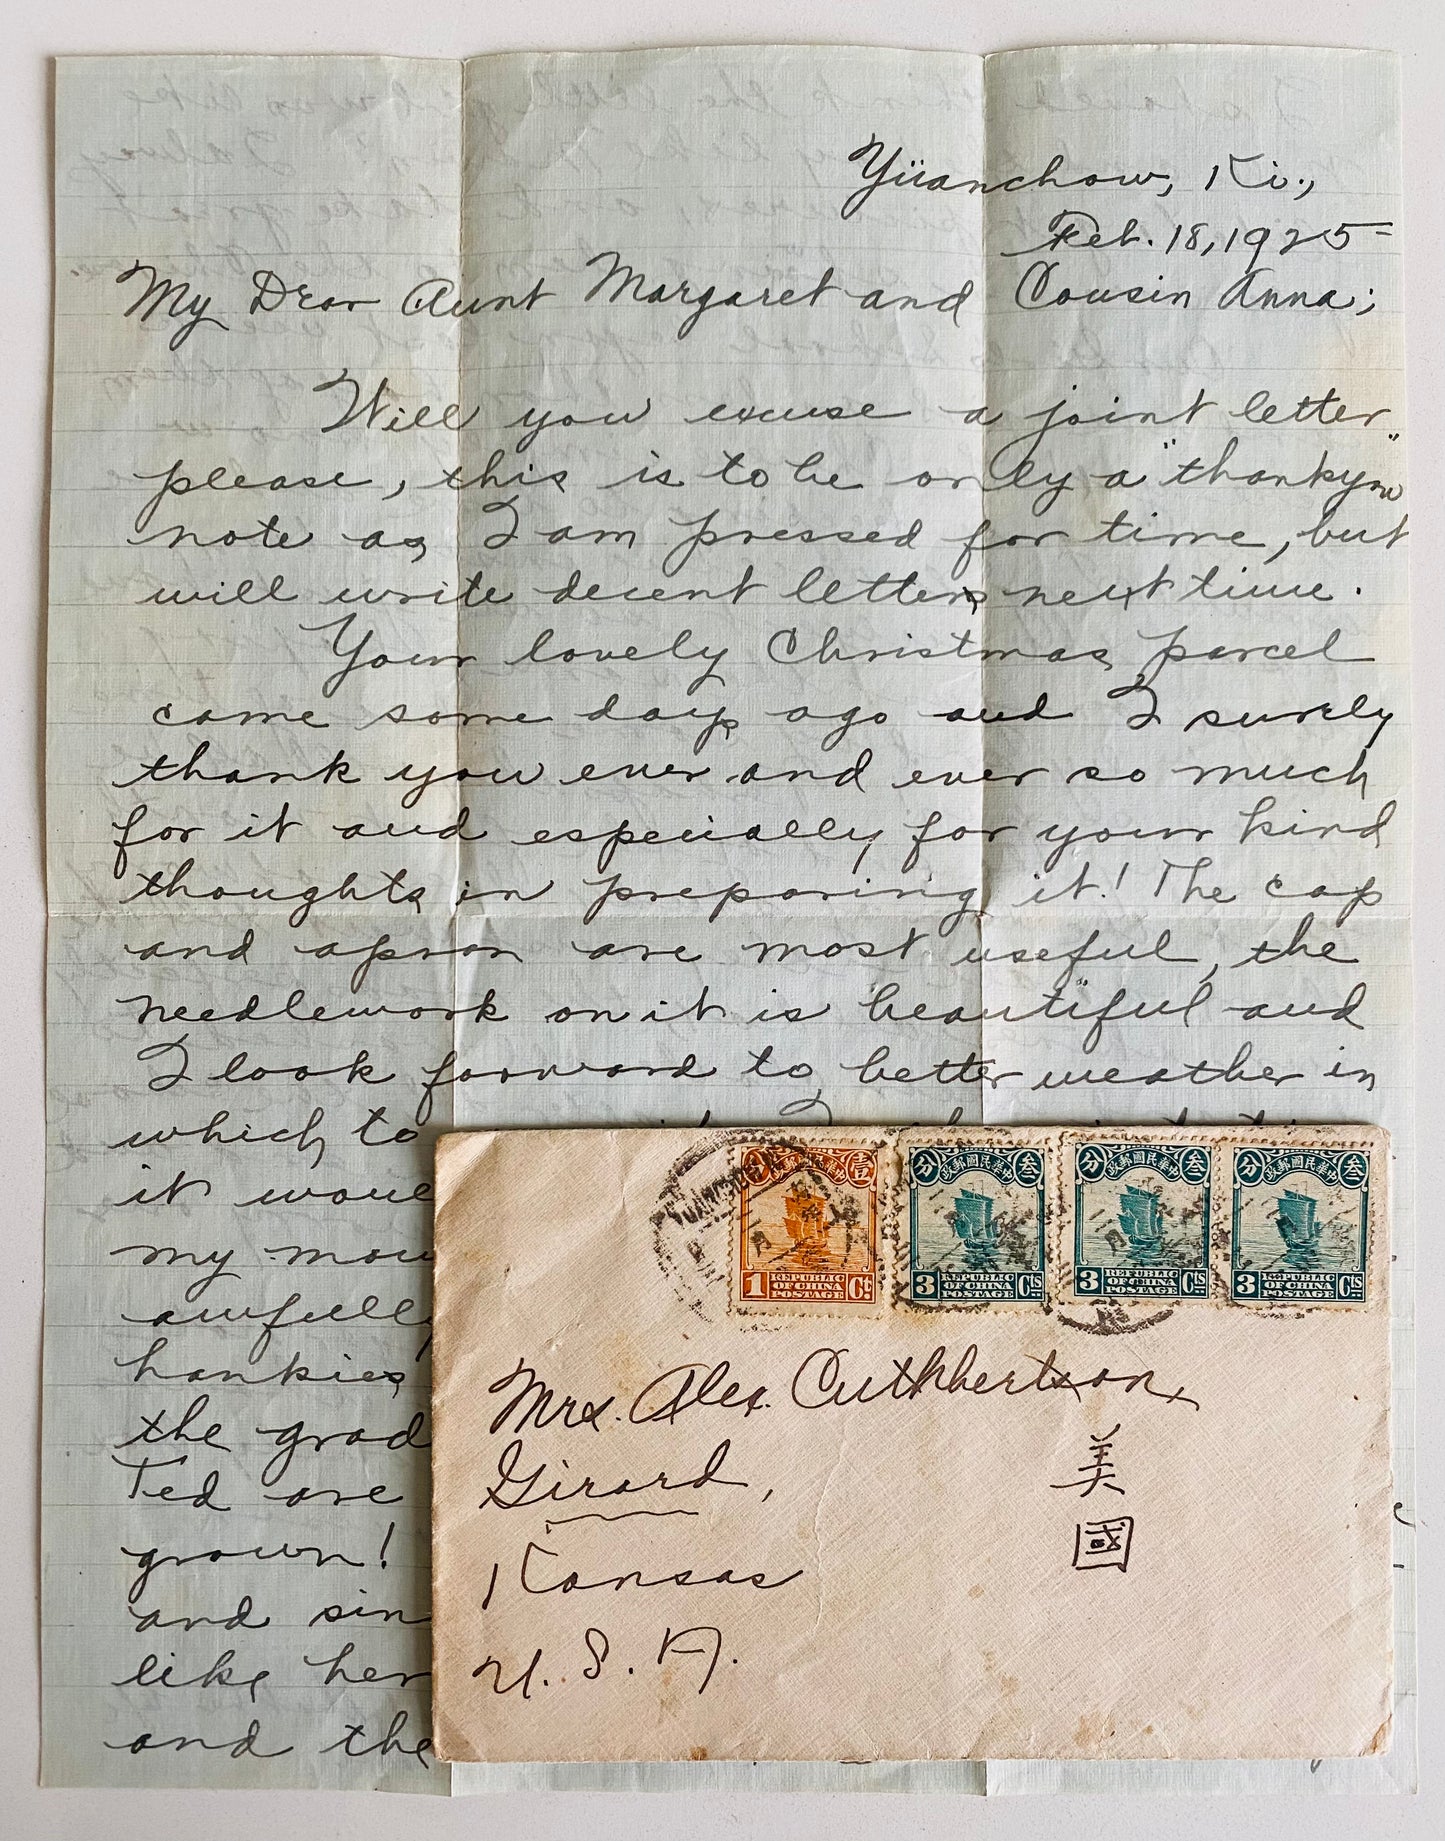 Yüanchow, Ki.,
Feb. 18, 1925
My Dear Aunt Margaret and Cousin Anna;
Will you excuse a joint letter
please, this is to be only a "thankyou"
note as I am pressed for time, but
will write decent letters next time.
Your lovely Christmas parcel
came some days ago and I surely
thank you ever and ever so much
for it and especially for your kind
thoughts in preparing it! The cap
and apron are most useful, the
needlework on it is beautiful and
I look forward to better weather in
which to
it
my
awfully
hankies
the
Ted are
grown!
and
like her
and the
分 中華民國郵政 壹
1 REPUBLIC OF CHINA POSTAGE Ct
分 中華民國郵政 叁
3 REPUBLIC OF CHINA POSTAGE Cts
分 中華民國郵政 叁
3 REPUBLIC OF CHINA POSTAGE Cts
分 中華民國郵政 叁
3 REPUBLIC OF CHINA POSTAGE Cts
Mrs. Alex. Cuthbertson,
Girard,
Kansas
U. S. A.
美國